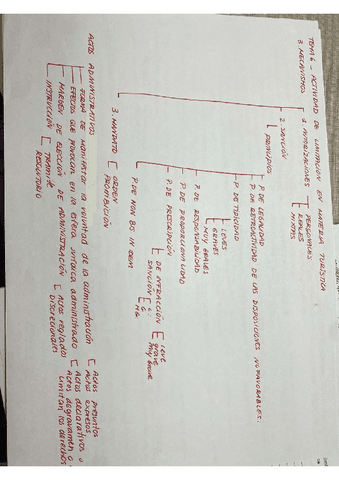 TEMA 6 - ACTIVIDAD DE LIMITACIÓN EN MATERIA TURÍSTICA
3 MECANISMOS
1. AUTORIZACIONES
PERSONALES
REALES
MIXTAS
2. SANCIÓN
PRINCIPIOS
P. DE LEGALIDAD
P. DE RETROACTIVIDAD DE LAS DISPOSICIONES NO FAVORABLES.
P. DE TIPICIDAD
LEVES
GRAVES
MUY GRAVES
P. DE RESPONSABILIDAD
P. DE PROPORCIONALIDAD
P. DE PRESCRIPCIÓN
DE INFRACCIÓN
leve
grave
muy grave
SANCIÓN
L
G
MG
P. DE NON BIS IN IDEM
3. MANDATO
ORDEN
PROHIBICIÓN
ACTOS ADMINISTRATIVOS
FORMA DE MANIFESTAR la voluntad de la administración
Actos presuntos
Actos expresos
EFECTOS QUE PROVOCAN en la esfera jurídica administrado
Actos declarativos o
Actos desgravamen o
limitan los derechos
MARGEN DE ELECCIÓN DE ADMINISTRACIÓN
Actos reglados
DISCRECIONALES
INSTRUCCIÓN
TRÁMITE
RESOLUTORIO